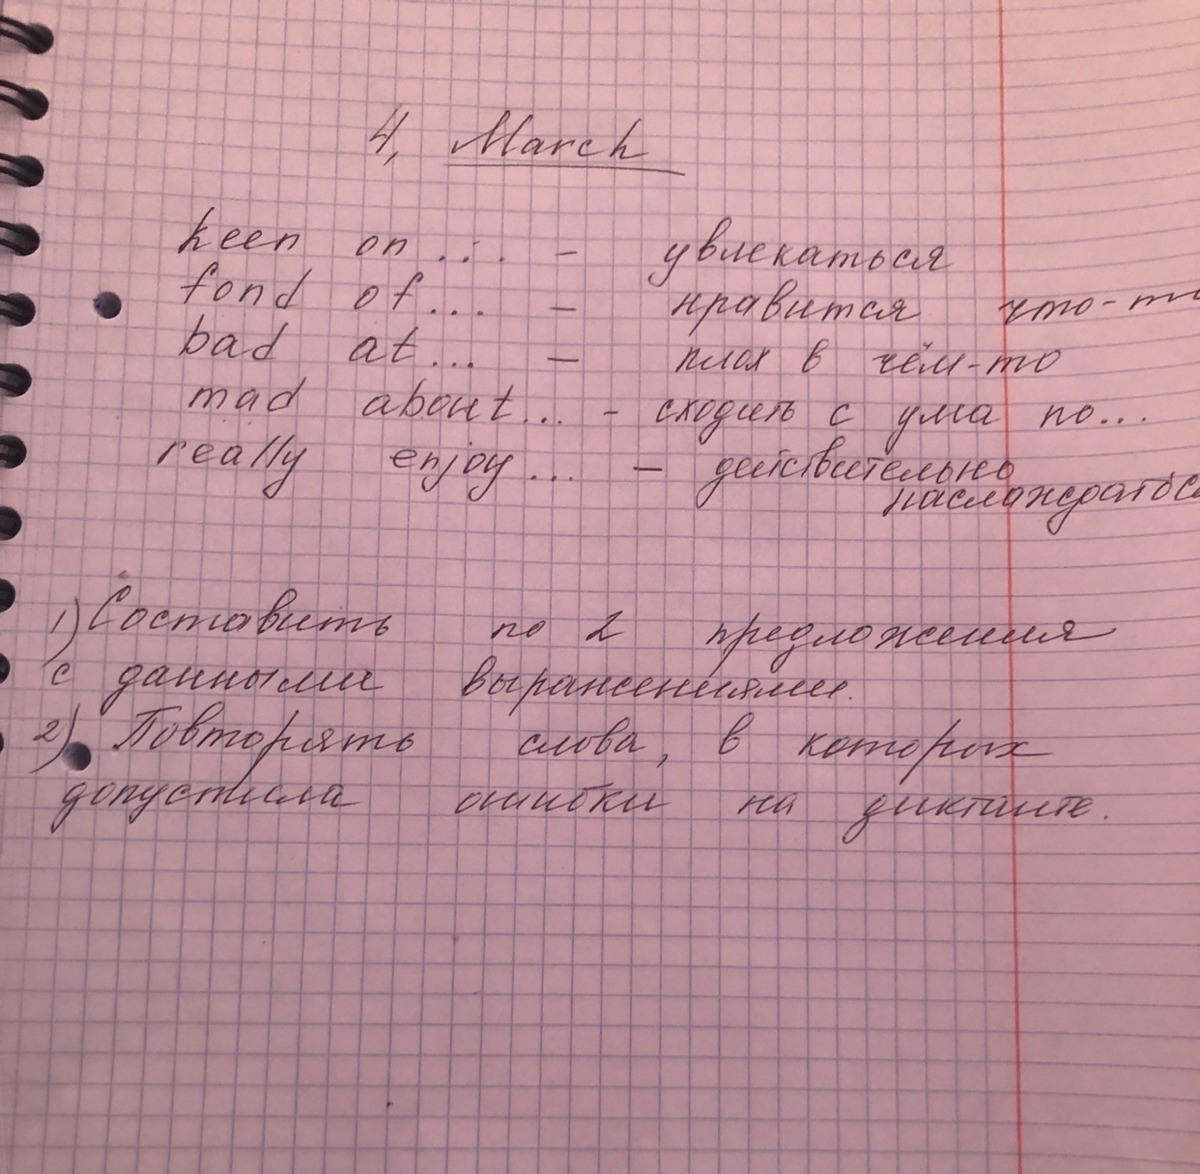 4, March
keen on... - увлекаться
fond of... - нравится что-то
bad at... - плох в чём-то
mad about... - сходить с ума по...
really enjoy... - действительно
наслаждаться
1) Составить по 2 предложения
с данными выражениями.
2) Повторять слова, в которых
допустила ошибки на диктанте.